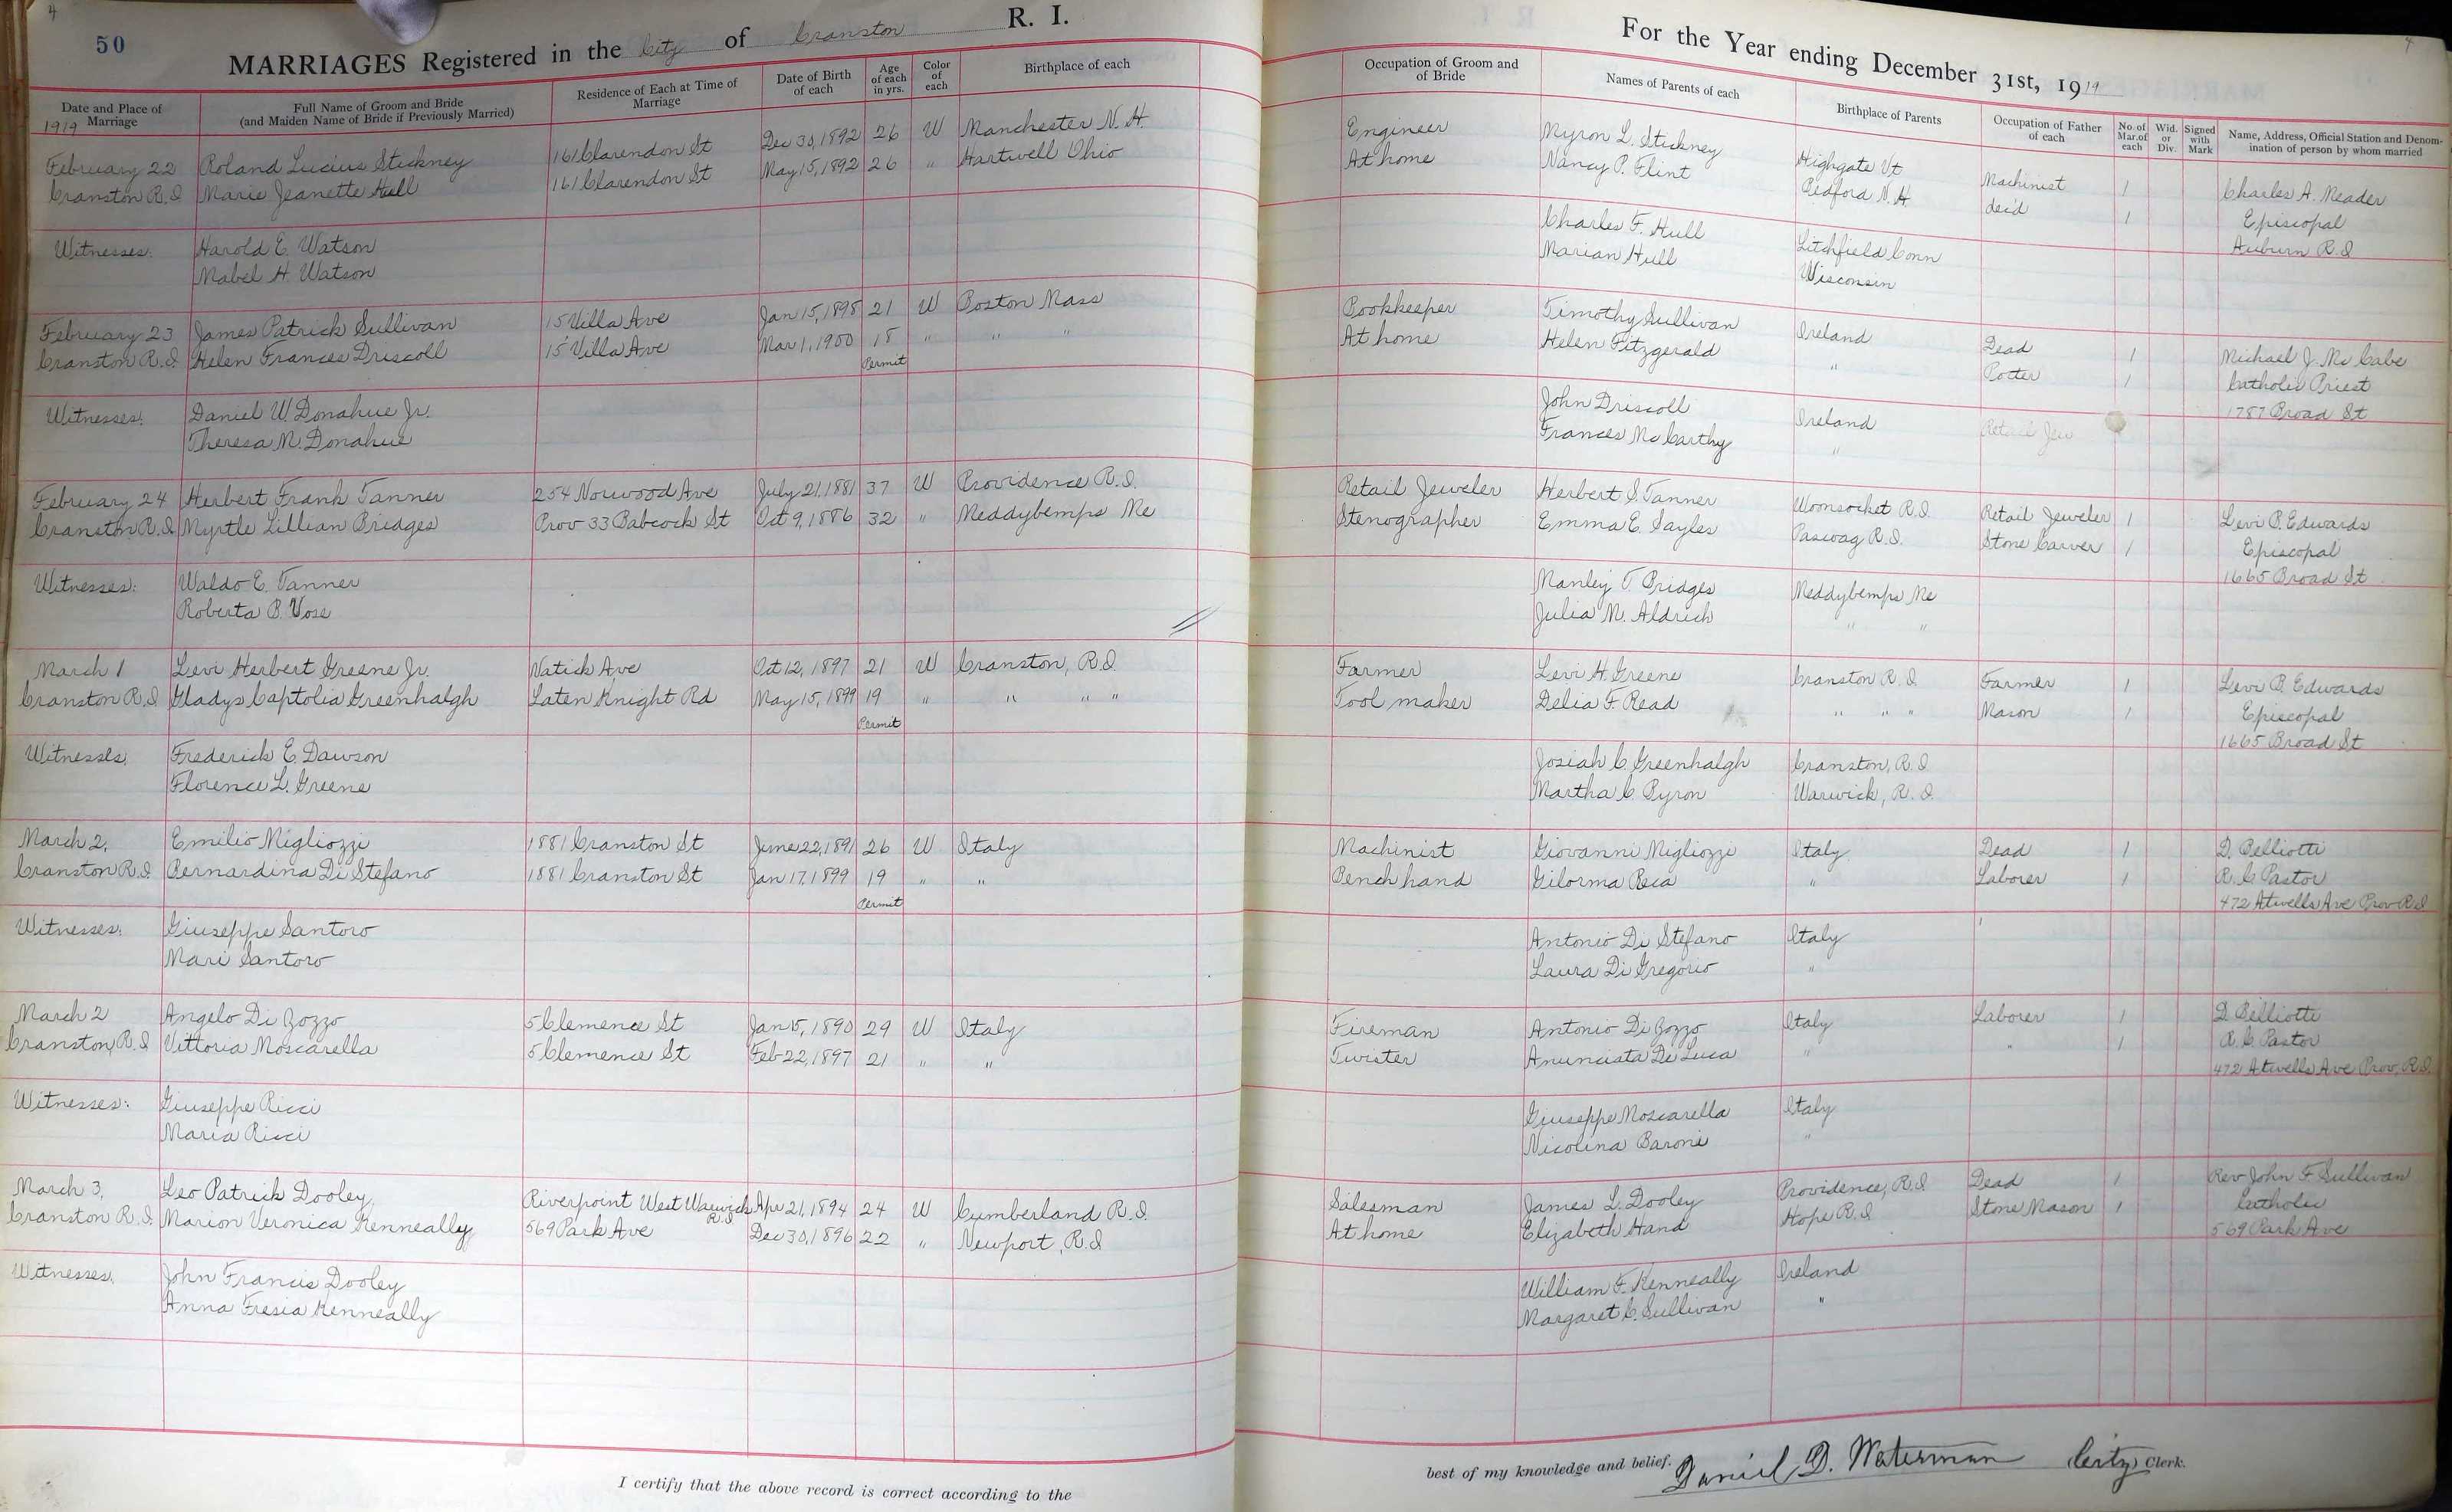 4
50
MARRIAGES Registered in the City of Cranston R. I.
Date and Place of Marriage
1919
Full Name of Groom and Bride
(and Maiden Name of Bride if Previously Married)
Residence of Each at Time of Marriage
Date of Birth of each
Age of each in yrs.
Color of each
Birthplace of each
February 22 Roland Lucius Stickney 161 Clarendon St Dec 30, 1892 26 W Manchester N. H.
Cranston R.I Marie Jeanette Hull 161 Clarendon St May 15, 1892 26 " Hartwell Ohio
Witnesses: Harold E. Watson
Mabel H. Watson
February 23 James Patrick Sullivan 15 Villa Ave Jan 15, 1898 21 W Boston Mass
Cranston R.I. Helen Frances Driscoll 15 Villa Ave Mar 1, 1900 18 " " "
Permit
Witnesses: Daniel W. Donahue Jr.
Theresa M. Donahue
February 24 Herbert Frank Tanner 254 Norwood Ave July 21, 1881 37 W Providence R.I.
Cranston R.I. Myrtle Lillian Bridges Prov 33 Babcock St Oct 9, 1886 32 " Meddybemps Me
Witnesses: Waldo E. Tanner
Roberta B. Vose
March 1 Levi Herbert Greene Jr. Natick Ave Oct 12, 1897 21 W Cranston, R.I.
Cranston R.I Gladys Captolia Greenhalgh Laten Knight Rd May 15, 1899 19 " " " "
Permit
Witnesses, Frederick E. Dawson
Florence L. Greene
March 2, Emilio Migliozzi 1881 Cranston St June 22, 1891 26 W Italy
Cranston R.I. Bernardina Di Stefano 1881 Cranston St Jan 17, 1899 19 " "
Permit
Witnesses: Giuseppe Santoro
Mari Santoro
March 2 Angelo Di Zozzo 5 Clemence St Jan 15, 1890 29 W Italy
Cranston, R.I Vittoria Moscarella 5 Clemence St Feb 22, 1897 21 " "
Witnesses: Giuseppe Ricci
Maria Ricci
March 3, Leo Patrick Dooley, Riverpoint West Warwick R.I Apr 21, 1894 24 W Cumberland R.I.
Cranston R.I. Marion Veronica Kenneally 569 Park Ave Dec 30, 1896 22 " Newport, R.I
Witnesses, John Francis Dooley
Anna Fresia Kenneally
I certify that the above record is correct according to the
For the Year ending December 31st, 1919
4
Occupation of Groom and of Bride
Names of Parents of each
Birthplace of Parents
Occupation of Father of each
No. of Mar. of each
Wid. or Div.
Signed with Mark
Name, Address, Official Station and Denomination of person by whom married
Engineer Myron L. Stickney Highgate Vt Machinist 1 Charles A. Meader
At home Nancy P. Flint Bedford N.H. dec'd 1 Episcopal
Auburn R.I
Charles F. Hull Litchfield Conn
Marian Hull Wisconsin
Bookkeeper Timothy Sullivan Ireland Dead 1 Michael J. Mc Cabe
At home Helen Fitzgerald " Porter 1 Catholic Priest
1787 Broad St
John Driscoll Ireland Retail Jew
Frances Mc Carthy "
Retail Jeweler Herbert S. Tanner Woonsocket R.I. Retail Jeweler 1 Levi B. Edwards
Stenographer Emma E. Sayles Pascoag R.I. Stone Carver 1 Episcopal
1665 Broad St
Manley T. Bridges Meddybemps Me
Julia M. Aldrich " "
Farmer Levi H. Greene Cranston R.I Farmer 1 Levi B. Edwards
Tool maker Delia F. Read " " " Mason 1 Episcopal
1665 Broad St
Josiah C. Greenhalgh Cranston, R.I
Martha C. Pyron Warwick, R.I.
Machinist Giovanni Migliozzi Italy Dead 1 D. Belliotti
Bench hand Gilorma Reca " Laborer 1 R.C Pastor
472 Atwells Ave Prov R.I
Antonio Di Stefano Italy
Laura Di Gregorio "
Fireman Antonio Di Zozzo Italy Laborer 1 D. Belliotti
Twister Anunciata De Luca " " 1 R.C Pastor
472 Atwells Ave Prov, R.I.
Giuseppe Moscarella Italy
Nicolina Barone "
Salesman James L. Dooley Providence, R.I. Dead 1 Rev John F. Sullivan
At home Elizabeth Hand Hope R.I Stone Mason 1 Catholic
569 Park Ave
William F. Kenneally Ireland
Margaret C. Sullivan "
best of my knowledge and belief. Daniel D. Waterman City Clerk.